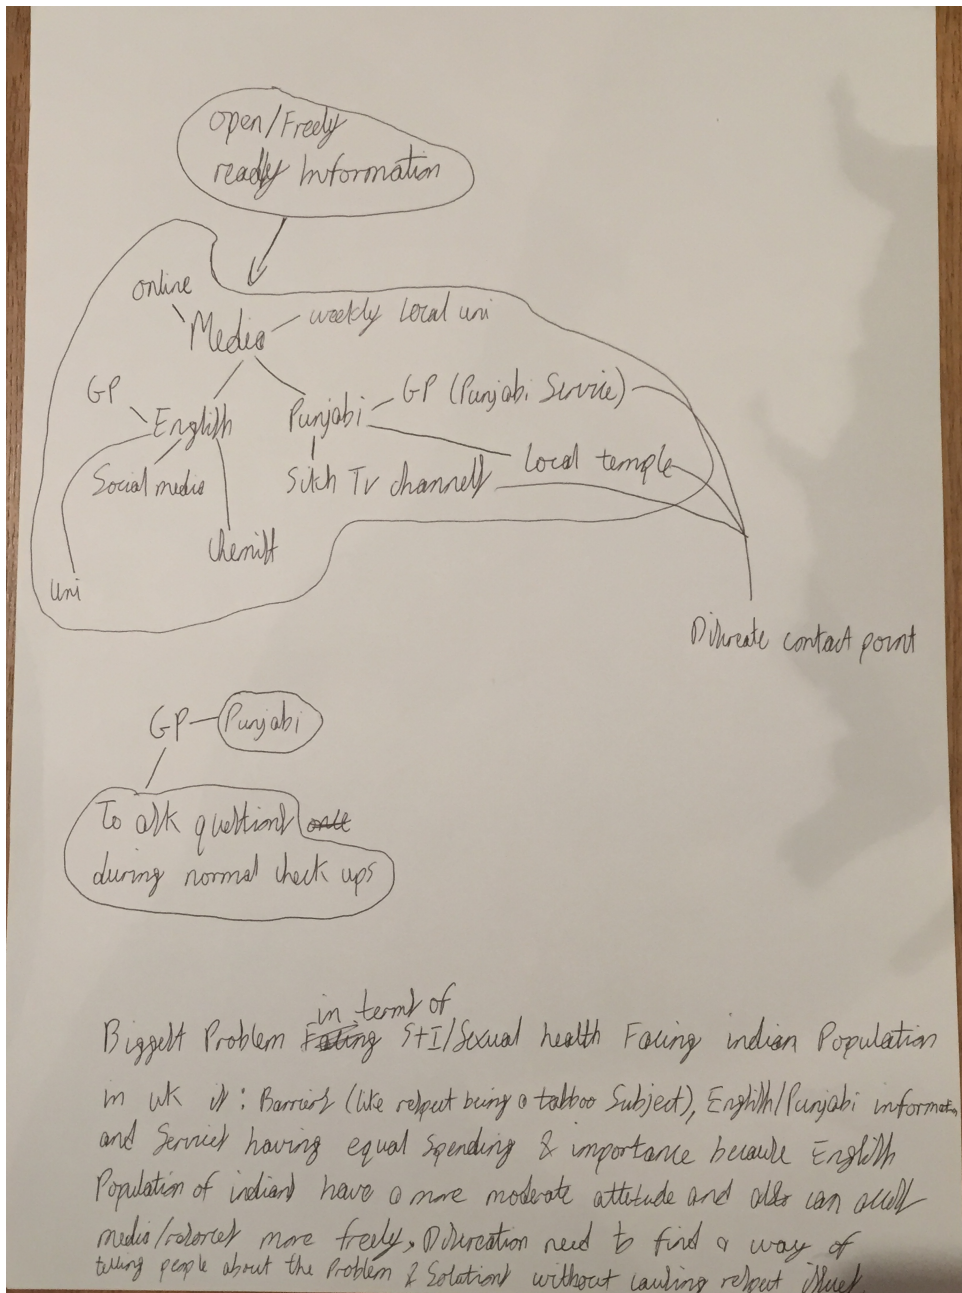 open/Freely
readly Information
online
Media
weekly Local uni
GP
English
Punjabi
GP (Punjabi Service)
Social media
Sikh Tv channels
Local temple
Chemist
uni
Discreate contact point
GP
Punjabi
To ask questions
during normal check ups
in terms of
Biggest Problem Facing STI/Sexual health Facing indian Population
in uk is: Barriers (like respect being a taboo Subject), English/Punjabi information
and Services having equal spending & importance because English
Population of indians have a more moderate attitude and also can access
media/ more freely, Discreation need to find a way of
telling people about the Problem & Solutions without causing respect issues